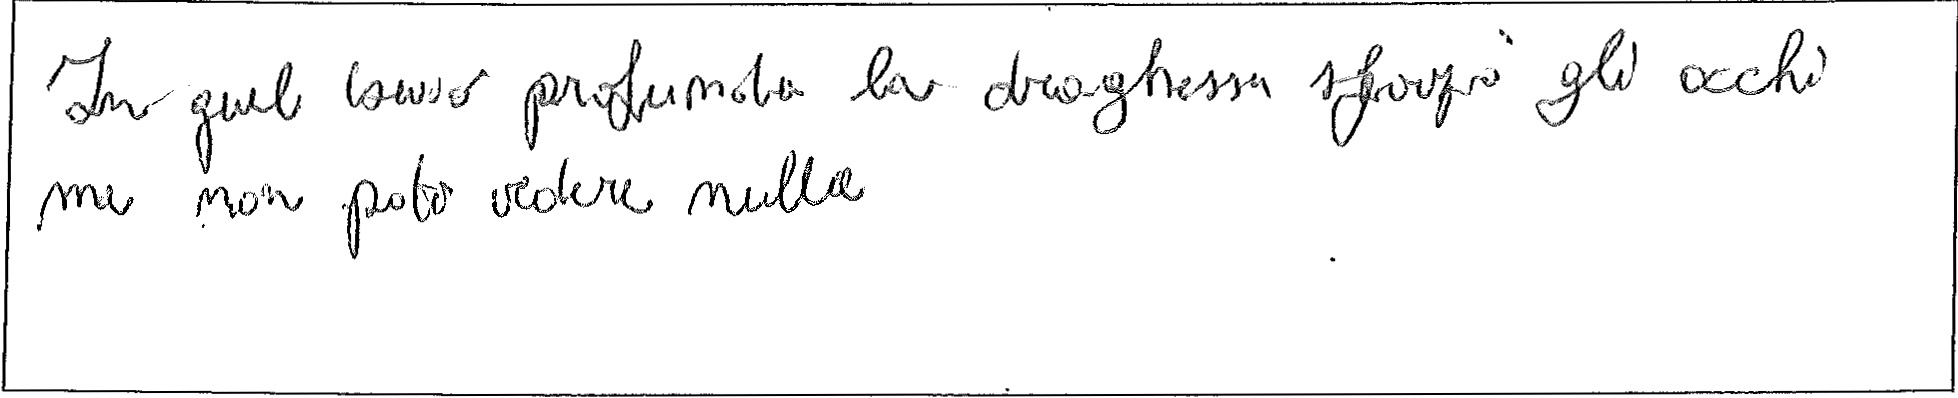 In quel buio profondo la draghessa sforzò gli occhi
ma non potè vedere nulla